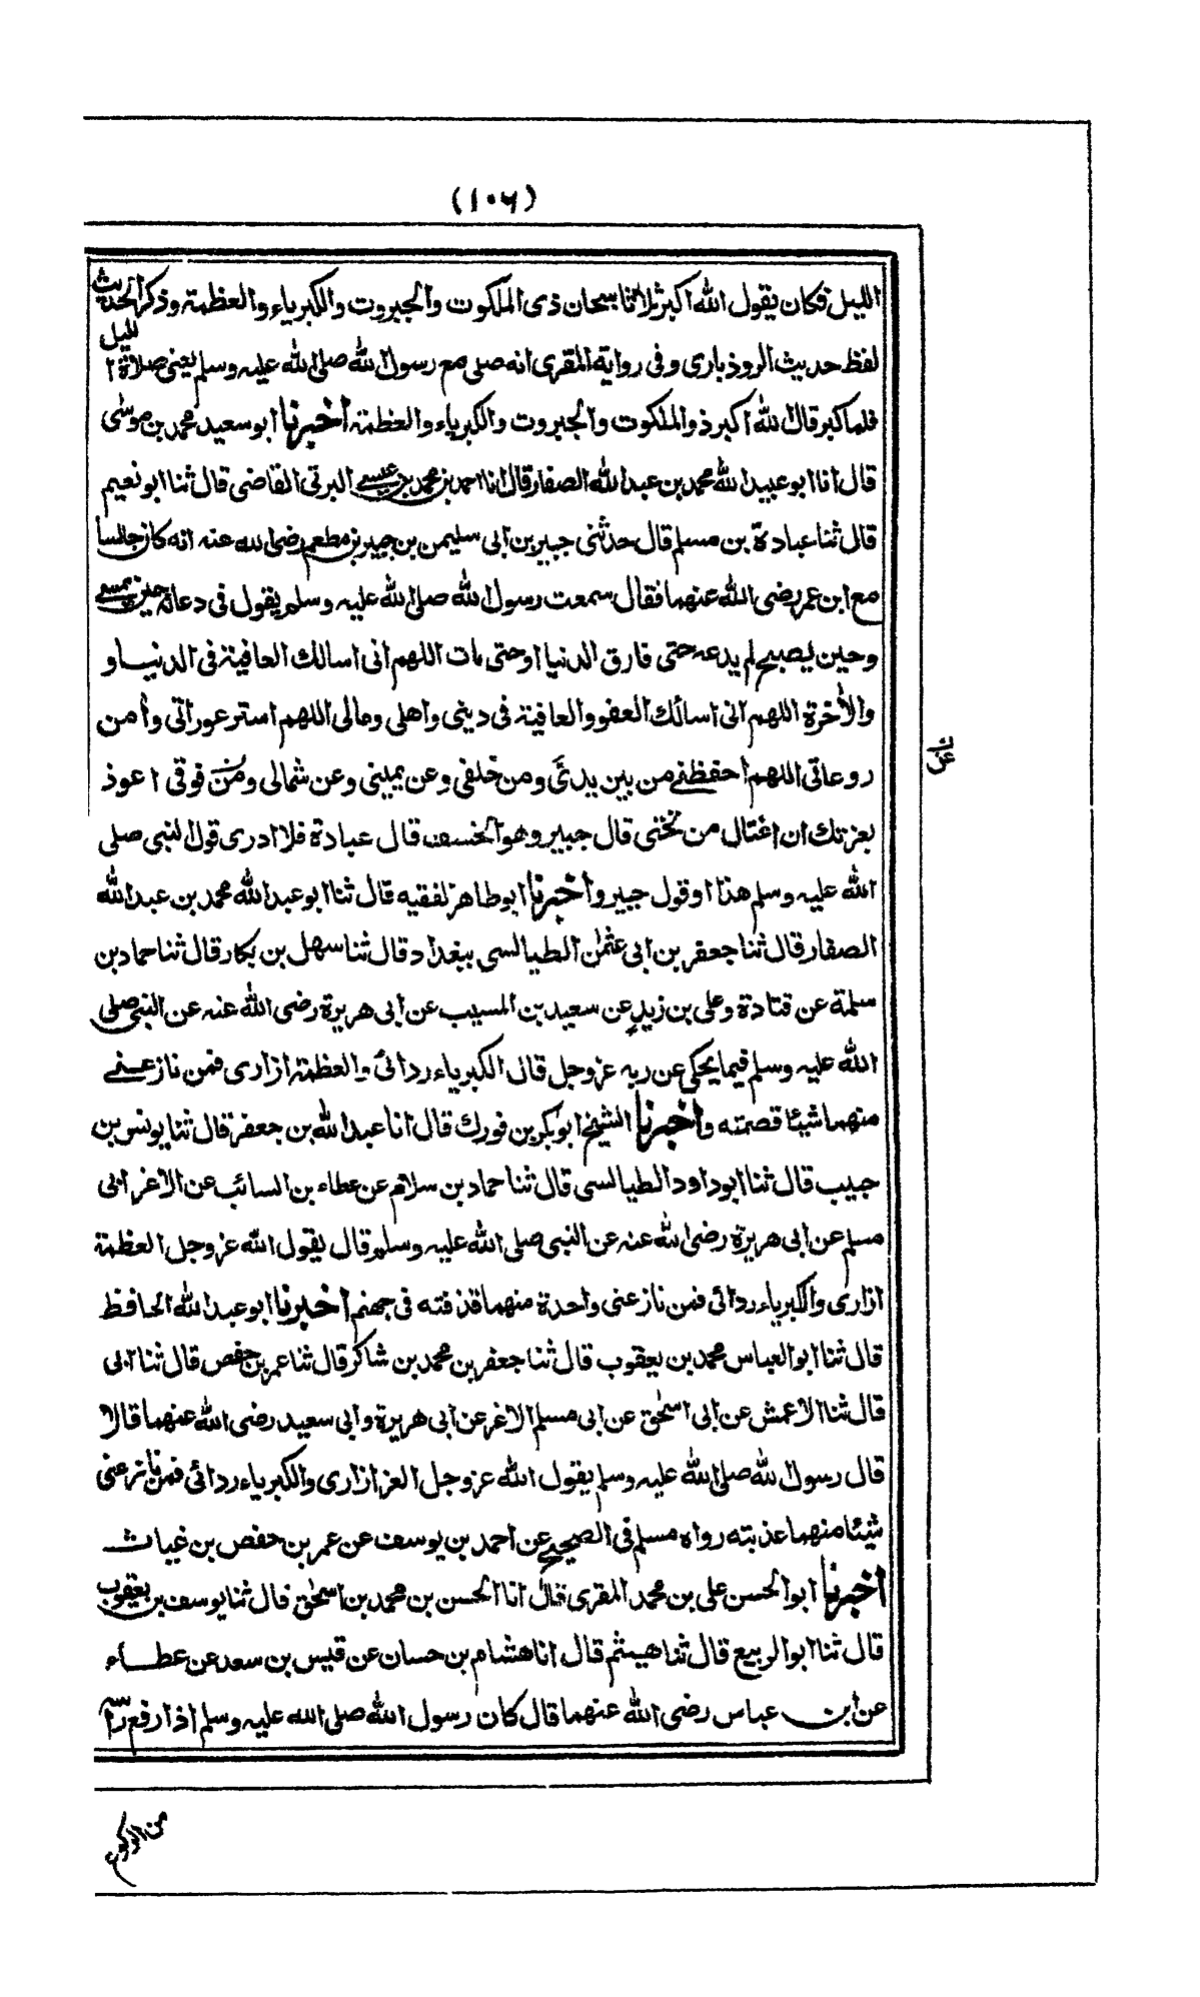 (۱۰۶)
الليل فكان يقول الله اكبر ثلاثا سبحان ذى الملكوت والجبروت والكبرياء والعظمة وذكر الحديث
لفظ حديث الروذبارى وفى رواية المقرى انه صلى مع رسول الله صلى الله عليه وسلم يعنى صلاة الليل
فلما كبر قال الله اكبر ذو الملكوت والجبروت والكبرياء والعظمة اخبرنا ابو سعيد محمد بن موسٰى
قال انا ابو عبيد الله محمد بن عبد الله الصفار قال انا احمد بن محمد بن عيسى البرتى القاضى قال ثنا ابو نعيم
قال ثنا عبادة بن مسلم قال حدثنى جبير بن ابى سليمن بن جبير بن مطعم رضى الله عنه انه كان جالسا
مع ابن عمر رضى الله عنهما فقال سمعت رسول الله صلى الله عليه وسلم يقول فى دعائه حين يمسى
وحين يصبح لم يدعه حتى فارق الدنيا او حتى مات اللهم انى اسالك العافية فى الدنيا و
والأخرة اللهم انى اسالك العفو والعافية فى دينى واهلى ومالى اللهم استر عوراتى وأمن
روعاتى اللهم احفظنى من بين يدىَّ ومن خلفى وعن يمينى وعن شمالى ومن فوقى اعوذ
عن
بعزتك ان اغتال من تحتى قال جبير وهو الخسف قال عبادة فلا ادرى قول النبى صلى
الله عليه وسلم هذا او قول جبير واخبرنا ابو طاهر الفقيه قال ثنا ابو عبد الله محمد بن عبد الله
الصفار قال ثنا جعفر بن ابى عثمٰن الطيالسى ببغداد قال ثنا سهل بن بكار قال ثنا حماد بن
سلمة عن قتادة وعلى بن زيد عن سعيد بن المسيب عن ابى هريرة رضى الله عنه عن النبى صلى
الله عليه وسلم فيما يحكى عن ربه عز وجل قال الكبرياء ردائى والعظمة ازارى فمن نازعنى
منهما شيئا قصمته واخبرنا الشيخ ابو بكر بن فورك قال انا عبد الله بن جعفر قال ثنا يونس بن
حبيب قال ثنا ابو داود الطيالسى قال ثنا حماد بن سلام عن عطاء بن السائب عن الاغر ابى
مسلم عن ابى هريرة رضى الله عنه عن النبى صلى الله عليه وسلم قال يقول الله عز وجل العظمة
ازارى والكبرياء ردائى فمن نازعنى واحدة منهما قذفته فى جهنم اخبرنا ابو عبد الله الحافظ
قال ثنا ابو العباس محمد بن يعقوب قال ثنا جعفر بن محمد بن شاكر قال ثنا عمر بن حفص قال ثنا ابى
قال ثنا الاعمش عن ابى اسحٰق عن ابى مسلم الاغر عن ابى هريرة وابى سعيد رضى الله عنهما قالا
قال رسول الله صلى الله عليه وسلم يقول الله عز وجل العز ازارى والكبرياء ردائى فمن نازعنى
شيئا منهما عذبته رواه مسلم فى الصحيح عن احمد بن يوسف عن عمر بن حفص بن غياث
اخبرنا ابو الحسن على بن محمد المقرى قال انا الحسن بن محمد بن اسحٰق قال ثنا يوسف بن يعقوب
قال ثنا ابو الربيع قال ثنا هيثم قال انا هشام بن حسان عن قيس بن سعد عن عطاء
عن ابن عباس رضى الله عنهما قال كان رسول الله صلى الله عليه وسلم اذا رفع راسه
من الركوع